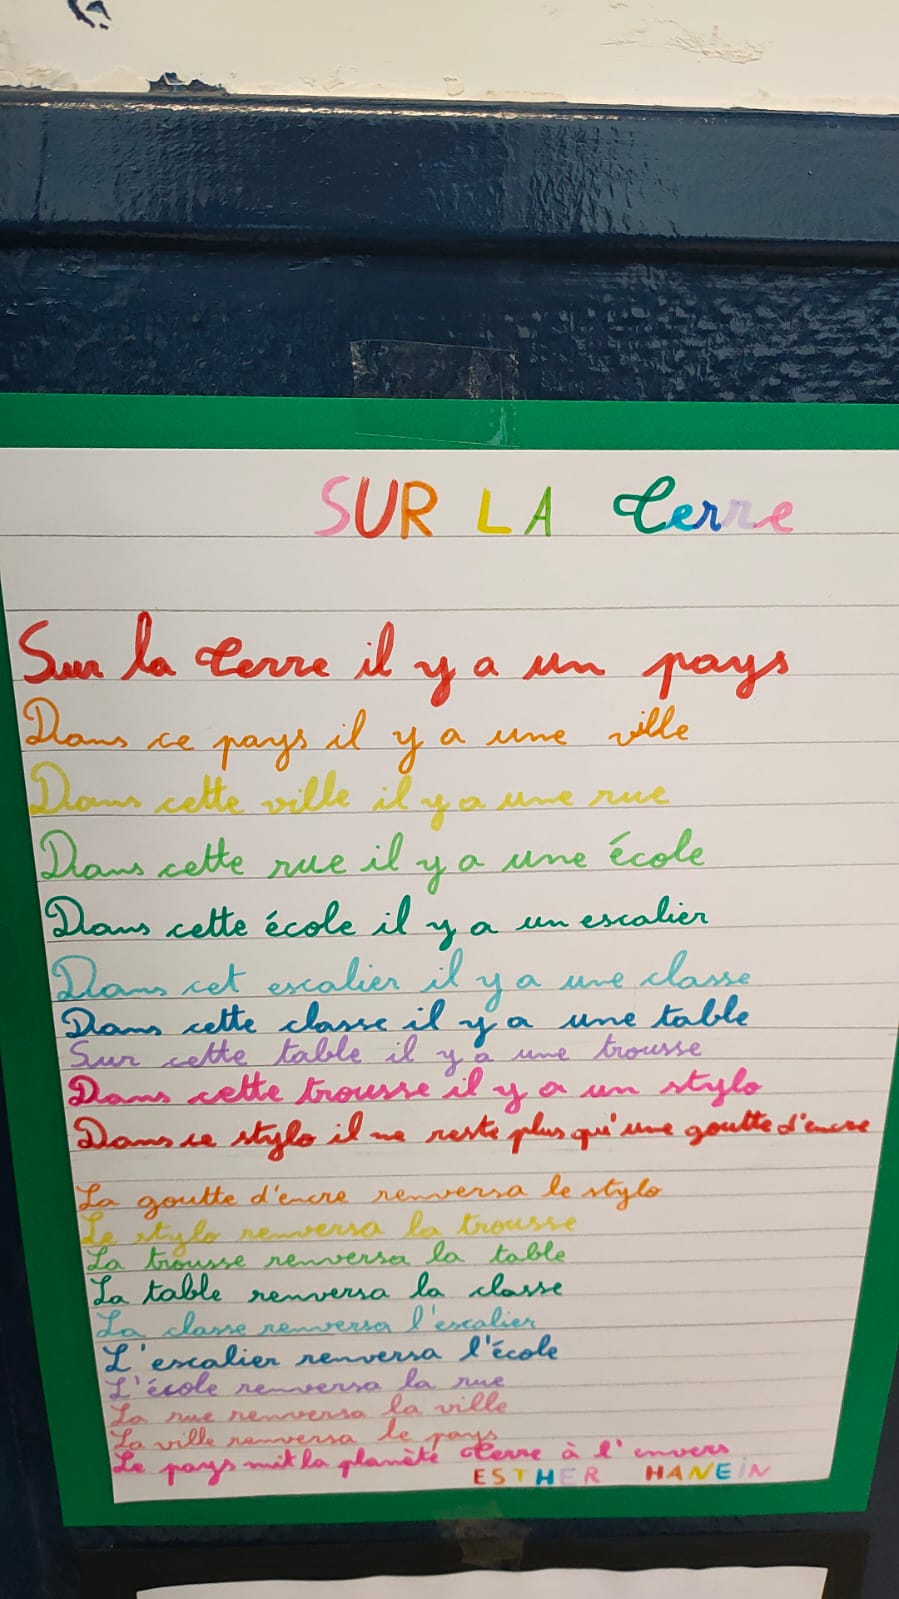 SUR LA Terre
Sur la Terre il y a un pays
Dans ce pays il y a une ville
Dans cette ville il y a une rue
Dans cette rue il y a une école
Dans cette école il y a un escalier
Dans cet escalier il y a une classe
Dans cette classe il y a une table
Sur cette table il y a une trousse
Dans cette trousse il y a un stylo
Dans ce stylo il ne reste plus qu'une goutte d'encre
La goutte d'encre renversa le stylo
Le stylo renversa la trousse
La trousse renversa la table
La table renversa la classe
La classe renversa l'escalier
L'escalier renversa l'école
L'école renversa la rue
La rue renversa la ville
La ville renversa le pays
Le pays mit la planète Terre à l'envers
ESTHER HANEIN